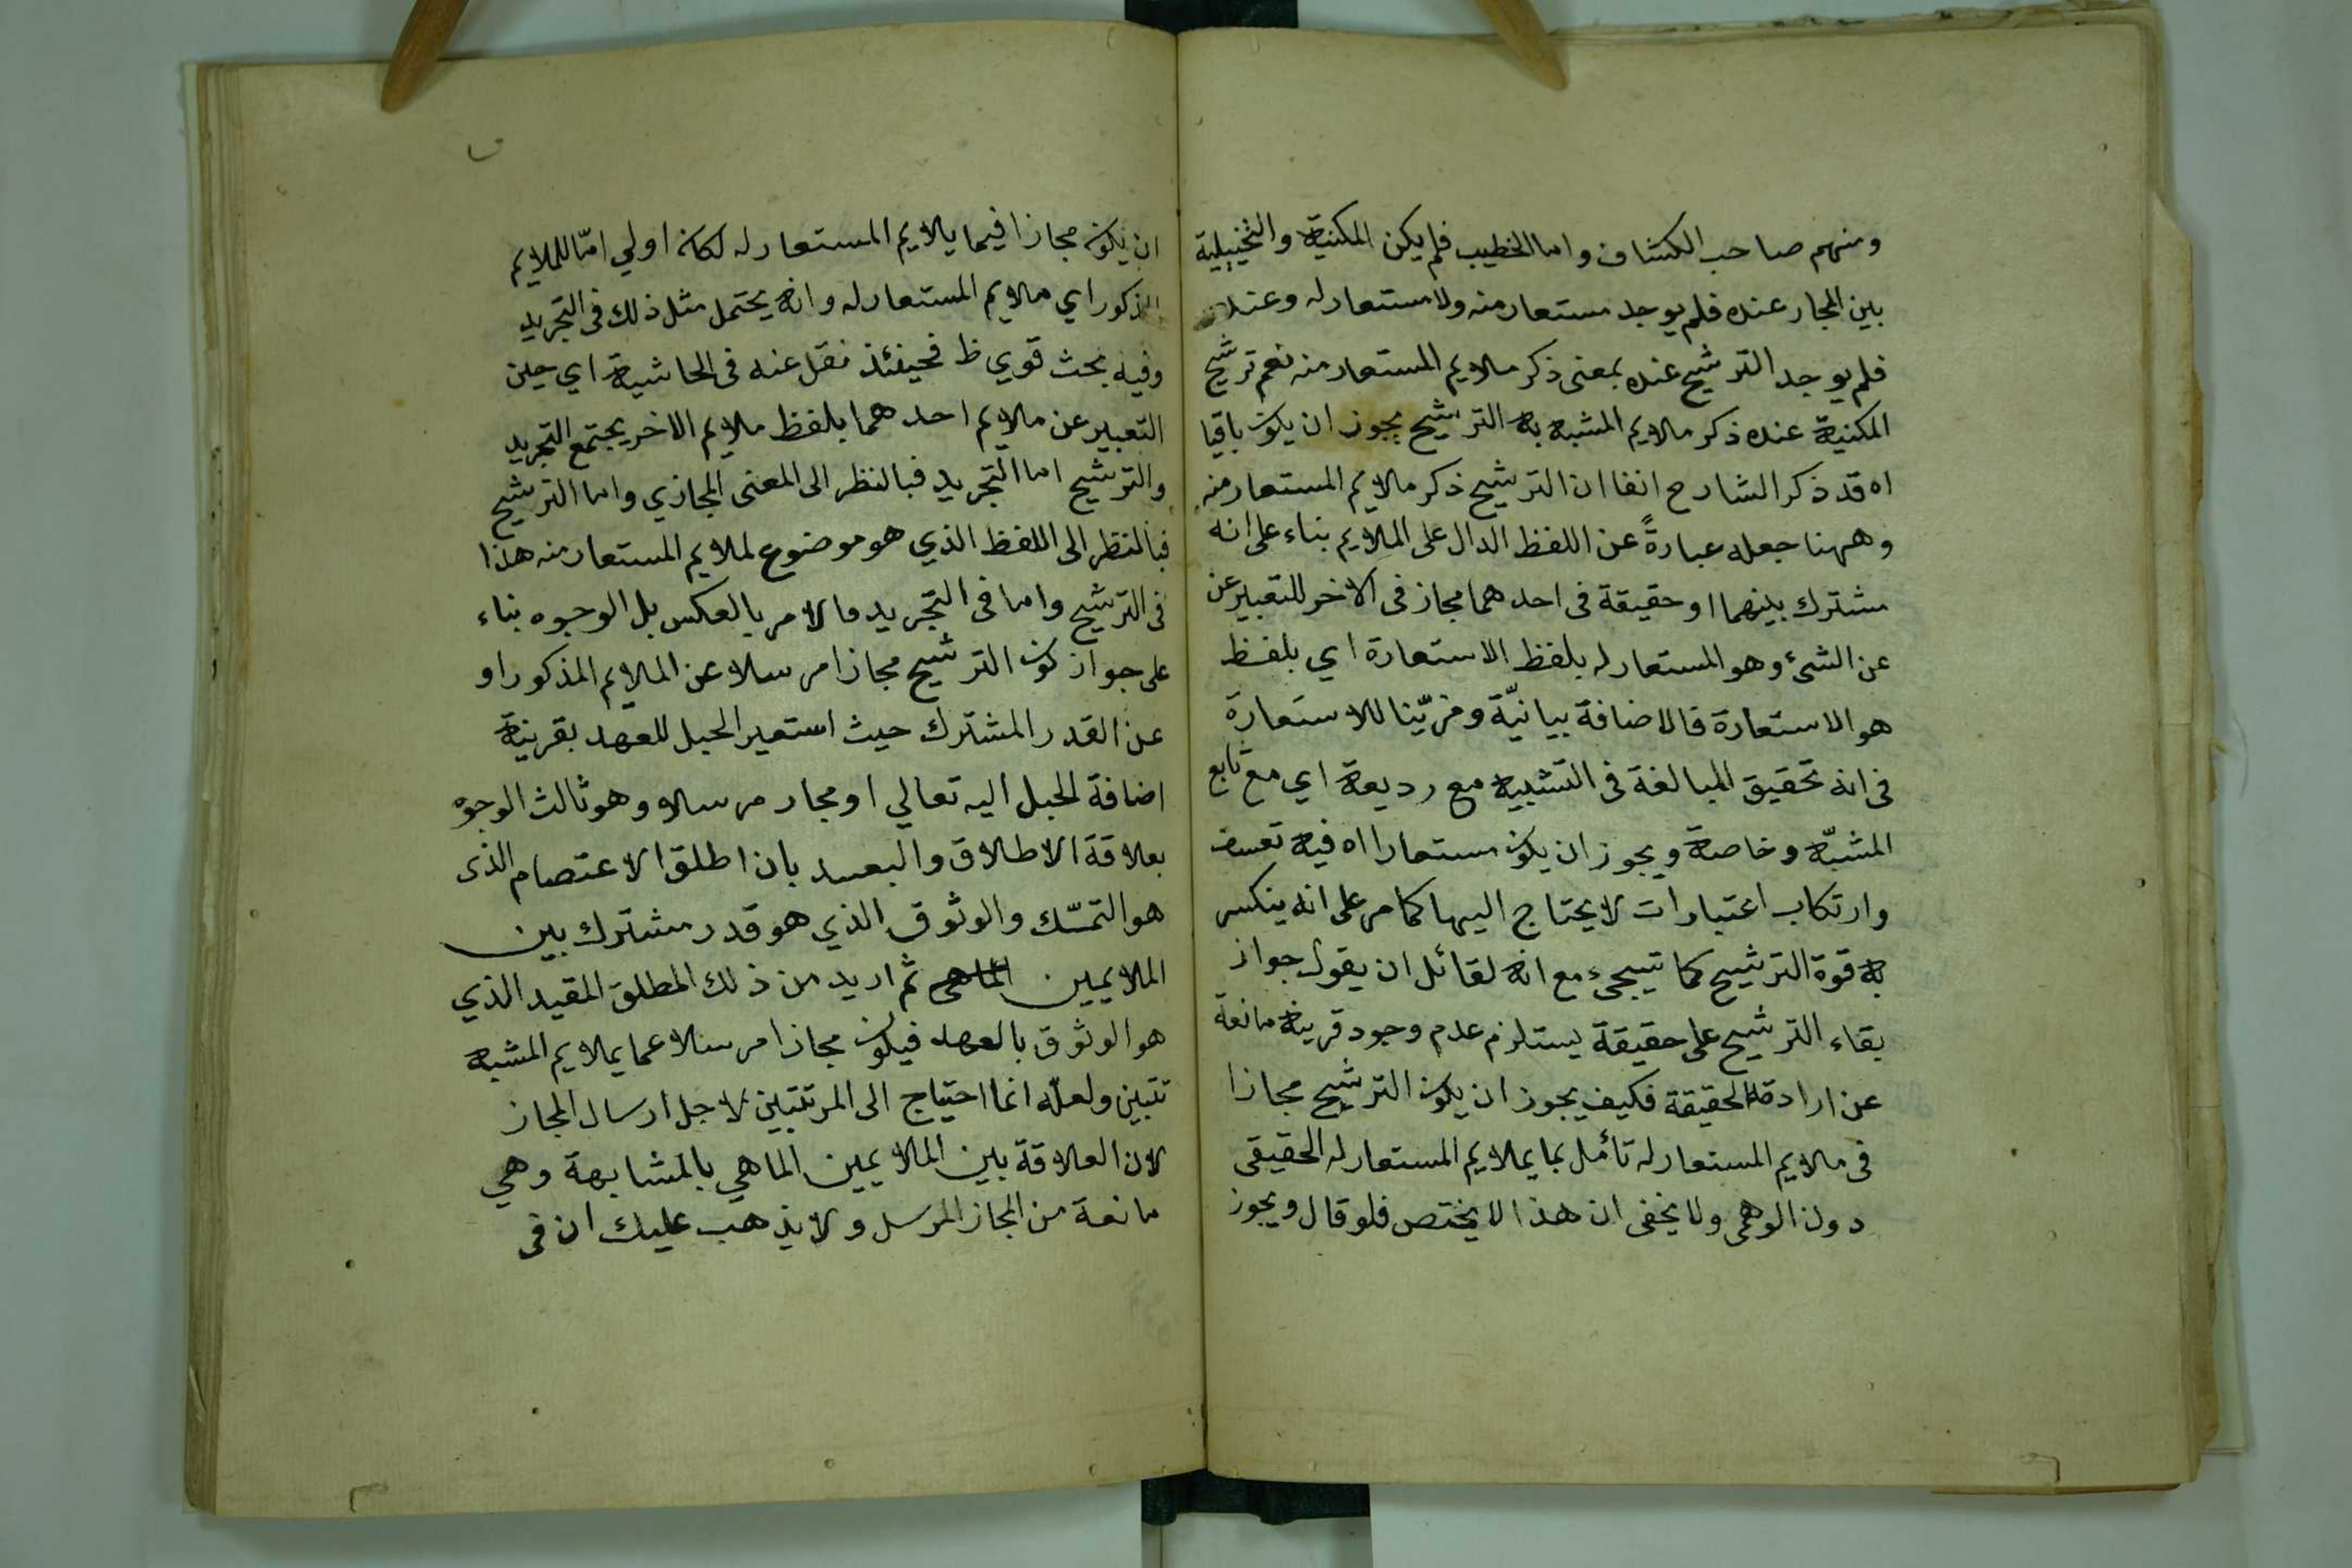 ومنهم صاحب الكشاف واما الخطيب فلم يكن المكنية والتخييلية
بين المجاز عنده فلم يوجد مستعار منه ولا مستعار له وعنده
فلم يوجد الترشيح عنده بمعنى ذكر ملايم المستعار منه نعم ترشيح
المكنية عنده ذكر ملايم المشبه به الترشيح يجوز ان يكون باقيا
اه قد ذكر الشارح انفا ان الترشيح ذكر ملايم المستعار منه
وههنا جعله عبارةً عن اللفظ الدال على الملايم بناء على انه
مشترك بينهما او حقيقة فى احدهما مجاز فى الاخر للتعبير عن
عن الشئ وهو المستعار له بلفظ الاستعارة اي بلفظ
هو الاستعارة فالاضافة بيانيّة ومزيّنا للاستعارة
فى انه تحقيق المبالغة فى التشبيه مع رديعة اي مع تابع
المشبّه وخاصة ويجوز ان يكون مستعارا اه فيه تعسف
وارتكاب اعتبارات لا يحتاج اليها كما مر على انه ينكسر
به قوة الترشيح كما تيجىء مع انه لقائل ان يقول جواز
بقاء الترشيح على حقيقة يستلزم عدم وجود قرينة مانعة
عن ارادة الحقيقة فكيف يجوز ان يكون الترشيح مجازا
فى ملايم المستعار له تأمل بما يملايم المستعار له الحقيقى
دون الوهمى ولا يخفى ان هذا لا يختص فلو قال ويجوز
ان يكون مجازا فيما يلايم المستعار له لكان اولي امّا للملايم
المذكور اي ملايم المستعار له وانه يحتمل مثل ذلك فى التجريد
وفيه بحث قوي ظ فحينئذ نقل عنه فى الحاشية اي حين
التعبير عن ملايم احدهما بلفظ ملايم الاخر يجتمع التجريد
والترشيح اما التجريد فبالنظر الى المعنى المجازي واما الترشيح
فبالنظر الى اللفظ الذي هو موضوع لملايم المستعار منه هذا
فى الترشيح واما فى التجريد فالامر بالعكس بل الوجوه بناء
على جواز كون الترشيح مجازا مرسلا عن الملايم المذكور او
عن القدر المشترك حيث استعير الحبل للعهد بقرينة
اضافة الحبل اليه تعالي او مجاز مرسلا وهو ثالث الوجوه
بعلاقة الاطلاق والبعيد بان اطلق الاعتصام الذى
هو التمسّك والوثوق الذي هو قدر مشترك بين
الملايمين ثم اريد من ذلك المطلق المقيد الذي
هو الوثوق بالعهد فيكون مجازا مرسلا عما يملايم المشبه
تتبين ولعلّه انما احتياج الى المرتبتين لاجل ارسال المجاز
لان العلاقة بين الملايمين انما هي بالمشابهة وهي
مانعة من المجاز المرسل ولا يذهب عليك ان فى